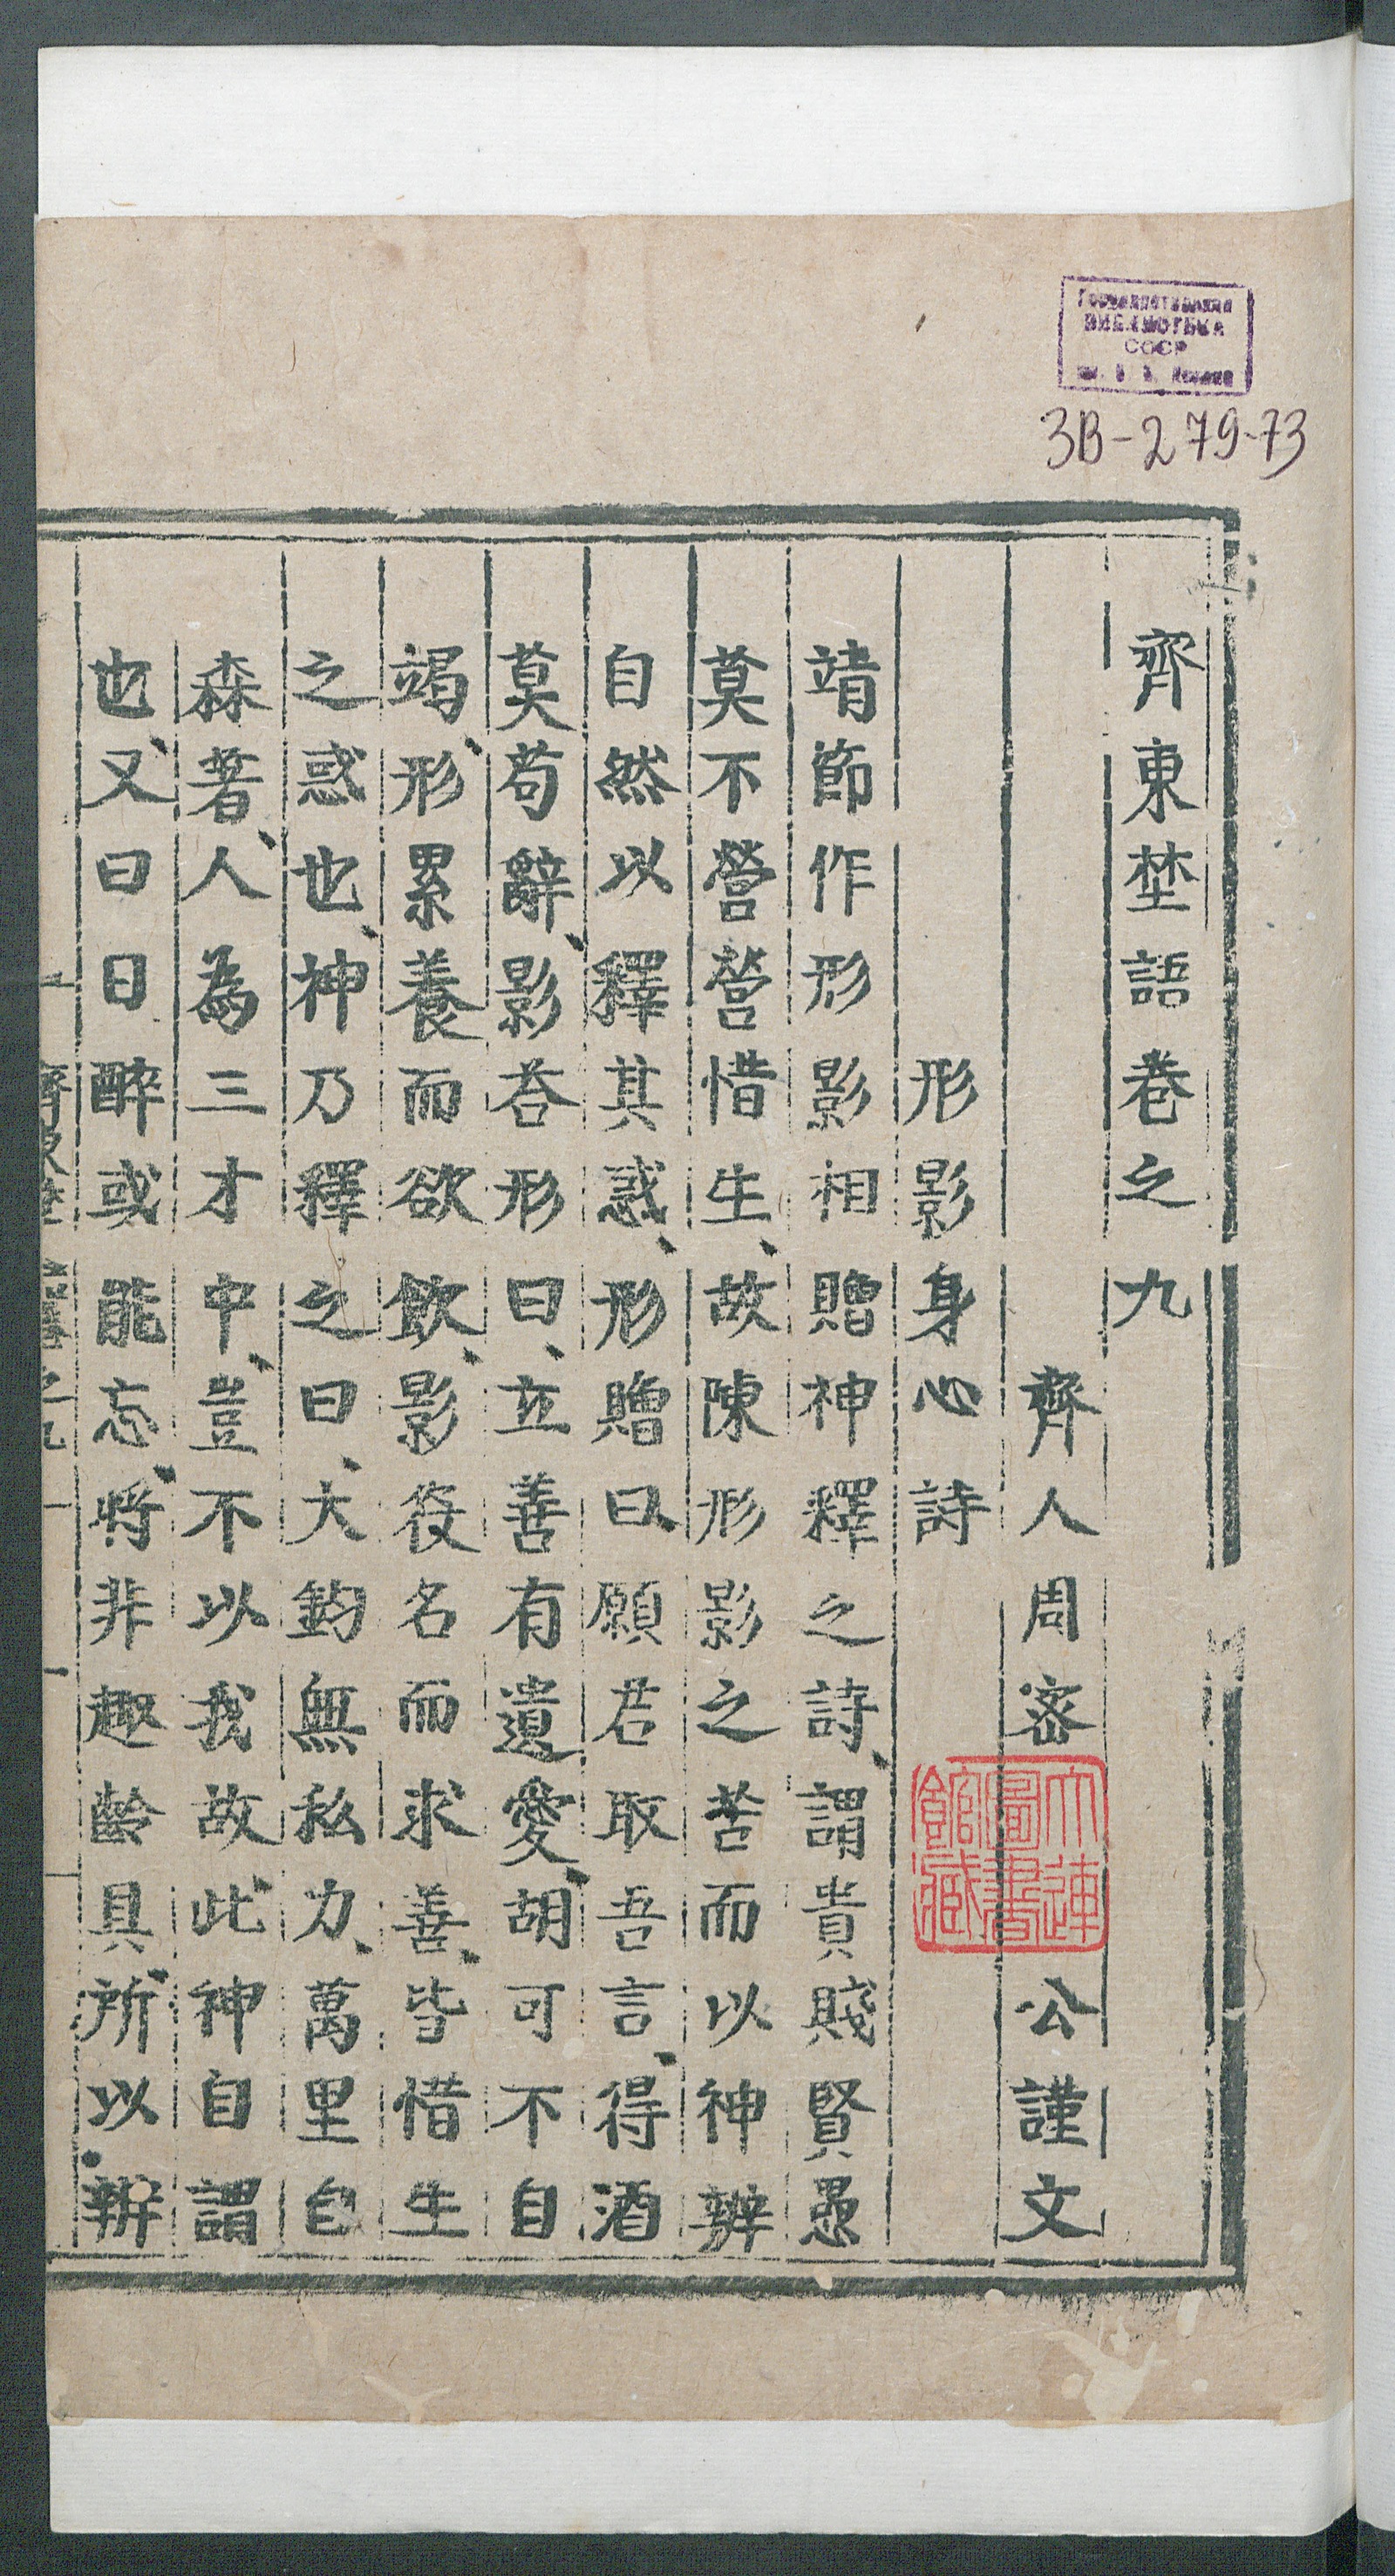 Государственная
БИБЛИОТЕКА
СССР
им. В. И. Ленина
3В-279-73
齊東埜語卷之九
齊人周密公謹文
形影身心詩
靖節作形影相贈神釋之詩、謂貴賤賢愚
莫不營營惜生、故陳形影之苦而以神辨
自然以釋其惑、形贈曰、願君取吾言、得酒
莫苟辭、影荅形曰、立善有遺愛、胡可不自
竭、形累養而欲飲、影役名而求善、皆惜生
之惑也、神乃釋之曰、大鈞無私力、萬里自
森著、人為三才中、豈不以我故、此神自謂
也、又曰日醉或能忘、將非趣齡具、所以辨
大連
圖書
館藏